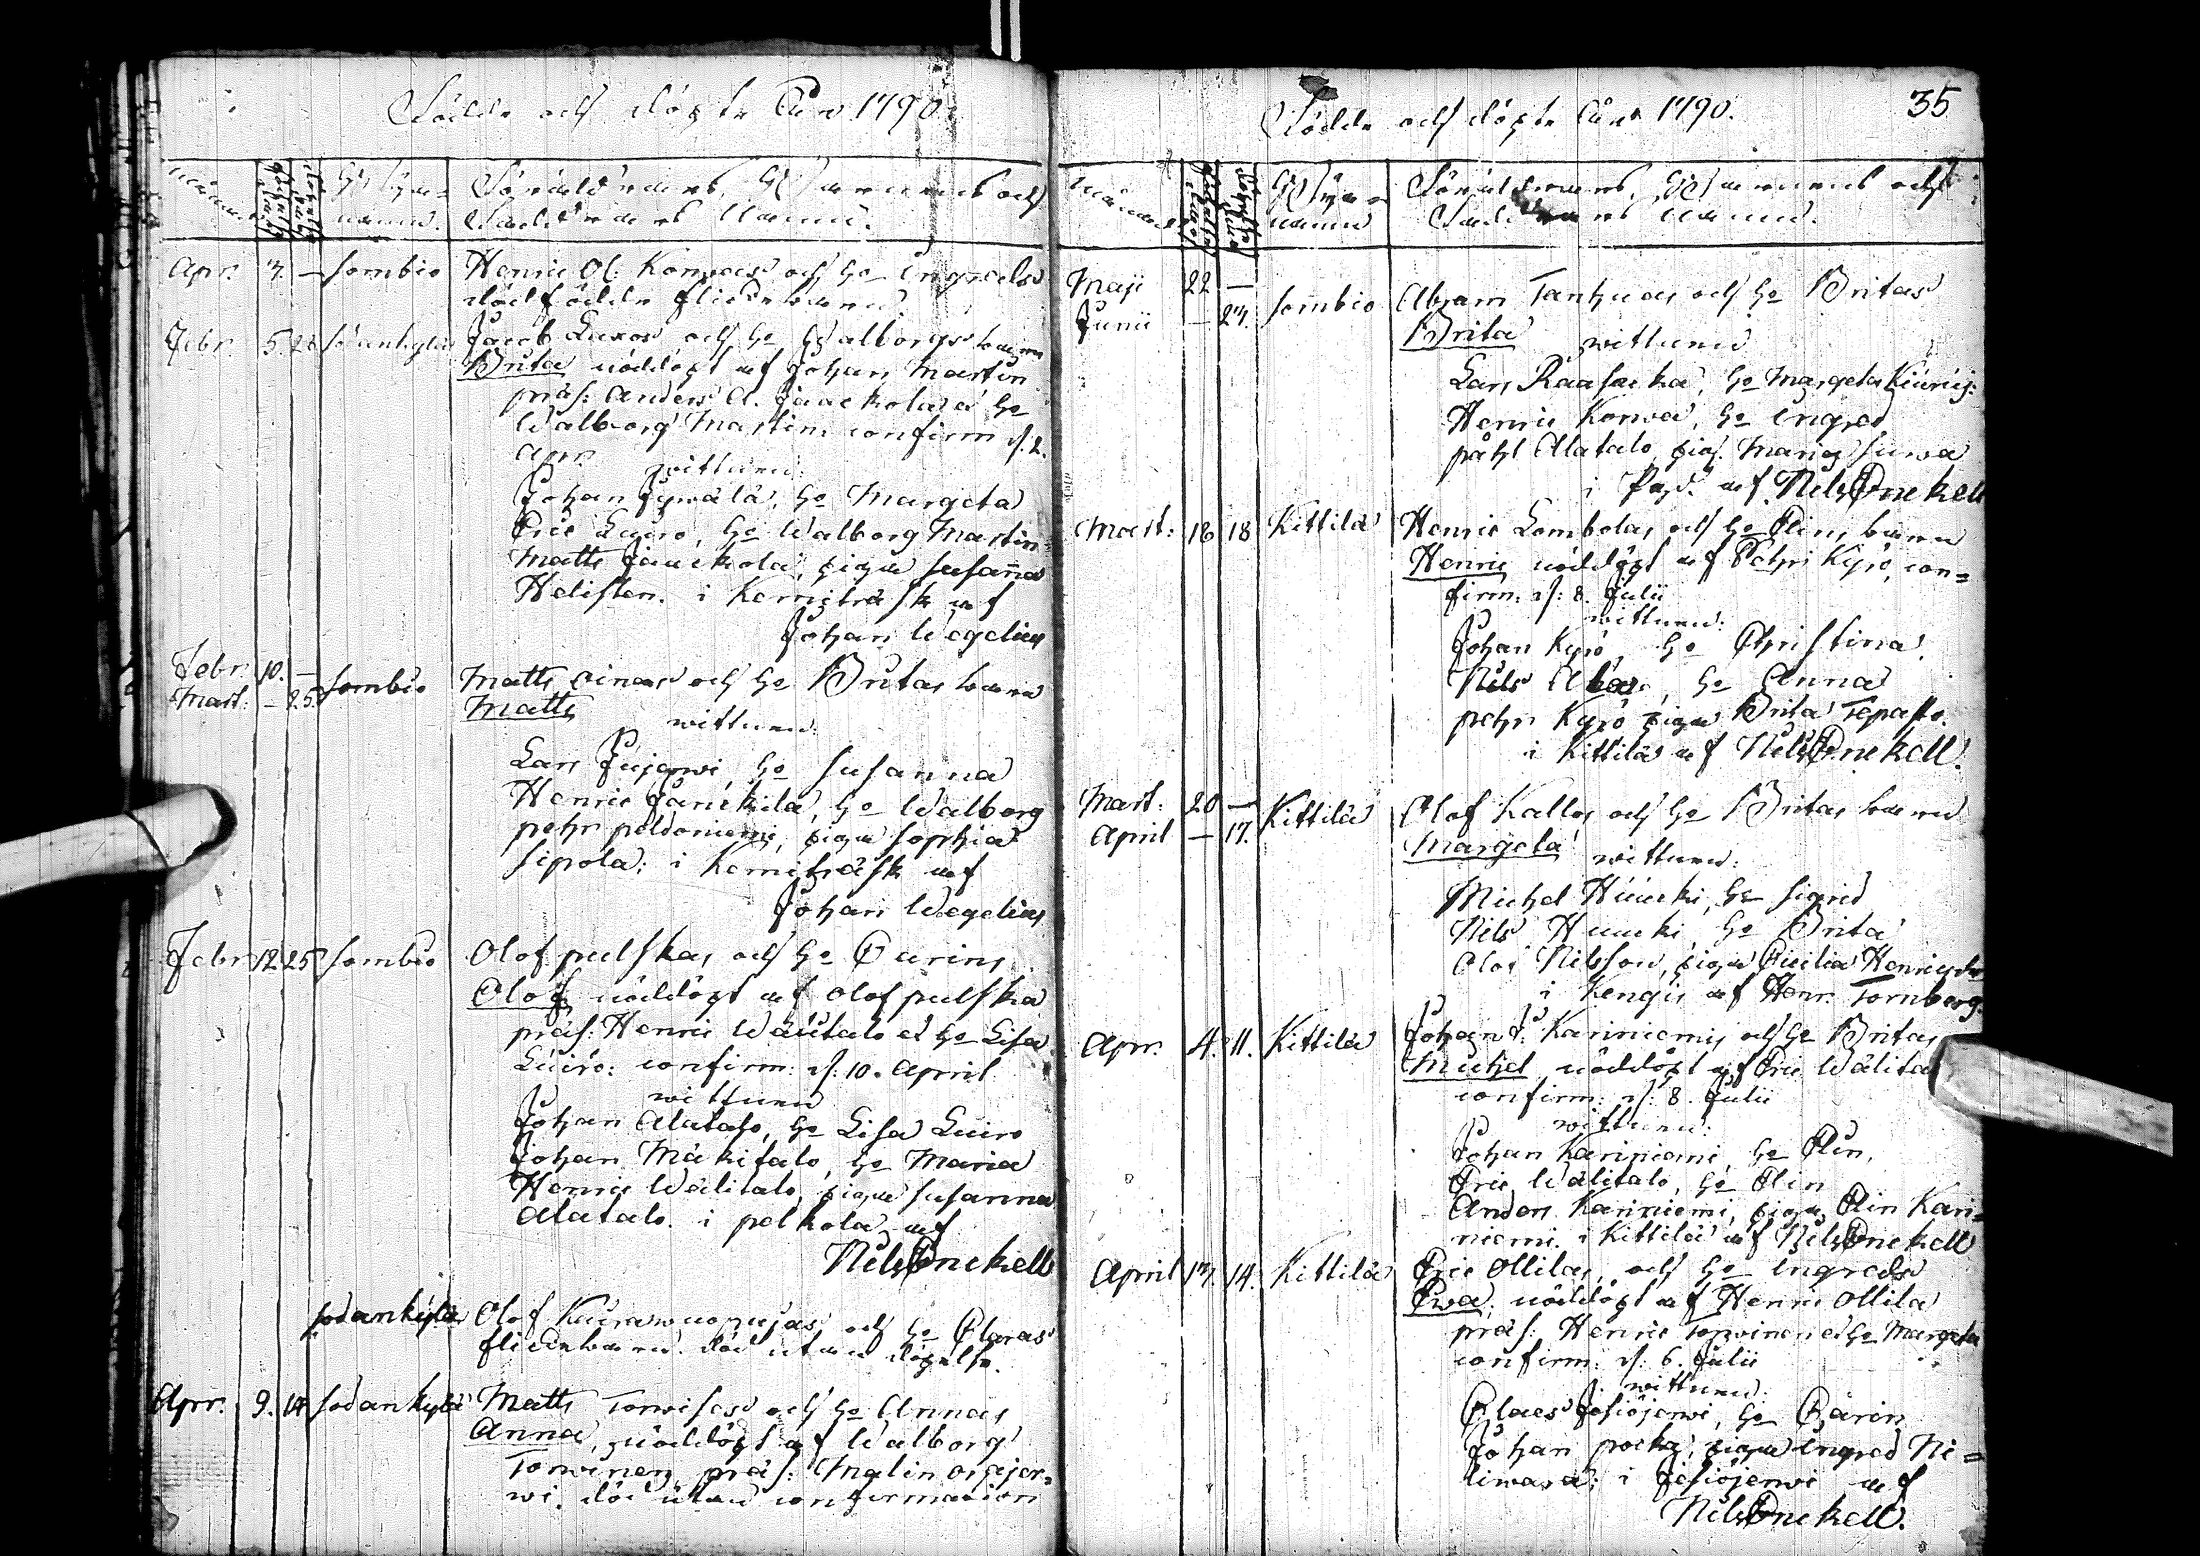 Födde och döpte Åhr 1790.
Månad
Födelse dag
Döpelse dag
By namn.
Föräldrarnes, Barnens och
Faddrarnes Namn.
Apr. 7. — Sombio Henric Ol: Korwas och h:o Ingreds
dödfödde flickebarn
Febr. 5. 26 Sodankylä Jacob Luiros och h:o Walborgs barn
Brita nöddöpt af Johan Martin
præs: Anders A. Jaackola et h:o
Walborg Martin confirm d. 2.
Apr.
wittnen:
Johan Jywälä, h:o Margeta
Eric Luiro, h:o Walborg Martin
Matts Jaackola, pigan Susanna
Helisten. i Kemiträsk af
Johan Wegelius
Febr. 10. —
Mart: — 25. Sombio Matts Ainas och h:o Britas barn
Matts
wittnen:
Lars Jujerwi, h:o Susanna
Henric Jauckila, h:o Walborg
Pehr Pöldoniemi, pigan Sophia
Sipola: i Kemiträsk af
Johan Wegelius
Febr. 12 25 Sombio Olof Pulskas och h:o Carins
Olof, nöddöpt af Olof Pulska
præs: Henric Wälitalo et h:o Lisa
Luiro: confirm: d: 10. April
wittnen
Johan Alatalo, h:o Lisa Luiro
Johan Mäkitalo, h:o Maria
Henric Wälitalo, pigan Susanna
Alatalo. i Pelkola af
Nils Fnekell
Sodankylä Olof Kuirawuopujas och h:o Claras
flickebarn. död utan döpelse.
Apr. 9. 14 Sodankylä Matts Torwises och h:o Annas
Anna, nöddöpt af Walborg
Torwinen, præs: Malin Orajer-
wi. död utan confirmation
35
Födde och döpte Åhr 1790.
Månad
Födelse dag
Döpelse dag
By namn
Föräldrarnes, Barnens och
Faddrarnes namn.
Maji 22 —
Junii — 27. Sombio Abram Tanhuas och h:o Britas
Brita wittnen
Lars Raasacka, h:o Margeta
Henric Korwa, h:o Ingred
Påhl Alatalo, pig. Maria Suwa
i af Nils Fnekell
Mart: 16 18 Kittilä Henric Lombolas och h:o Elins barn
Henric nöddöpt af Pehr Kyrö, con=
firm: d: 8. Julii
wittnen:
Johan Kyrö, h:o Christina
Nils h:o Anna
Pehr Kyrö pigan Brita Tepasto.
i Kittilä af Nils Fnekell.
Mart: 20 —
April — 17. Kittilä Olof Kallos och h:o Britas barn
Margeta wittnen:
Michel Huucki, h:o Sigrid
Nils Huucki h:o Brita
Olof Nilsson, pigan Cicilia Henricsdr
i Kengis af Henr. Tornberg.
Apr. 4. 11. Kittilä Johan J: Kariniemis och h:o Britas
Michel nöddöpt af Eric Wälitalo
confirm: d: 8. Julii
wittnen:
Johan Kariniemi, h:o Elin,
Eric Wälitalo, h:o Elin
Anders Kariniemi, pigan Elin Kari=
niemi. i Kittilä af Nils Fnekell
April 13. 14. Kittilä Eric Ollilas, och h:o Ingreds
Ewa, nöddöpt af Henric Ollila
præs: Henric Torwinen et h:o Margeta
confirm: d: 6. Julii
wittnen:
Claes Jesiöjerwi, h:o Carin
Johan Pocka, pigan Ingred Ni=
liwara; i Jesiöjerwi af
Nils Fnekell.